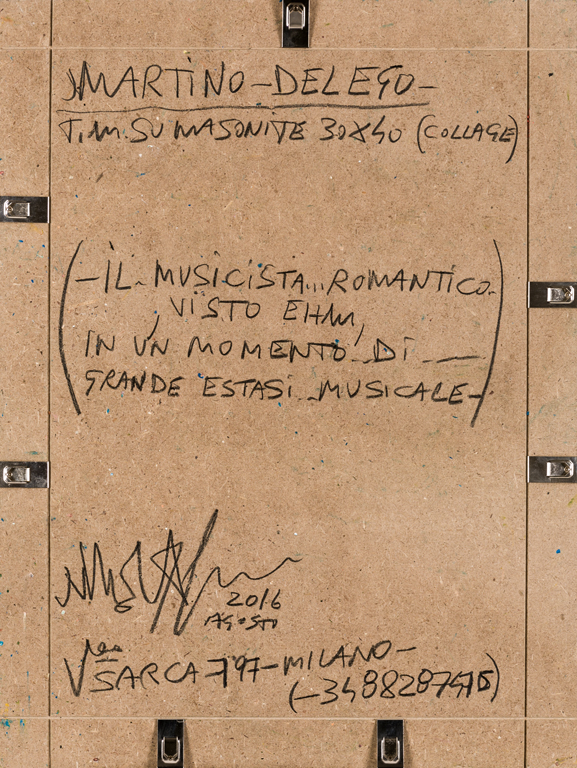 MARTINO - DELEGO -
T.M. SU MASONITE 30X40 (COLLAGE)
(- IL. MUSICISTA... ROMANTICO.
VISTO EHM,
IN UN MOMENTO.. DI —
GRANDE ESTASI.. MUSICALE -)
2016
AGOSTO
SARCA - 197 - MILANO -